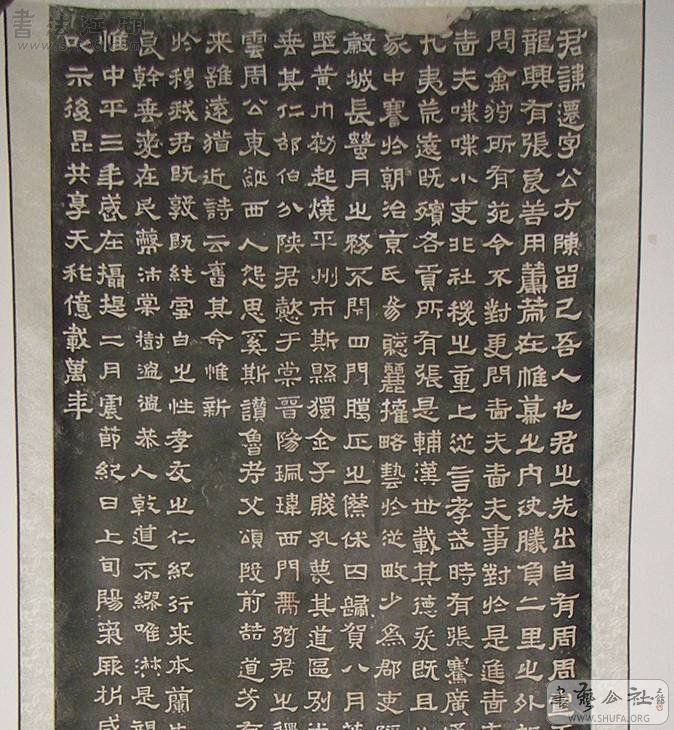 君諱遷字公方陳留己吾人也君之先出自有周周
龍興有張良善用籌策在帷幕之内決勝負千里之外析
問禽狩所有苑令不對更問嗇夫嗇夫事對於是進嗇夫
嗇夫喋喋小吏非社稷之重上從言孝武時有張騫廣通
八夷荒遠既殯各貢所有張是輔漢世載其德爰既且
家中謇於朝治京氏易聰麗權略藝於從畋少為郡吏隱
穀城長蠶月之務不閉四門臘正之僚休囚歸賀八月筭
堅黃巾初起燒平城市斯縣獨全子賤孔蔑其道區別尚
垂其仁邵伯分陝君懿于棠晉陽珮瑋西門帶弦君之體
雲周公東征西人怨思奚斯讚魯考父頌殷前喆遺芳有
來雖遠猶近詩云舊其命惟新
於穆我君既敦既純雪白之性孝友之仁紀行來本蘭生
良幹垂愛在民蔽沛棠樹溫溫恭人乾道不繆唯淑是親
惟中平三年歲在攝提二月震節紀日上旬陽氣厥析感
以示後昆共享天祚億載萬年
書法江湖
書藝公社
WWW.SHUFA.ORG